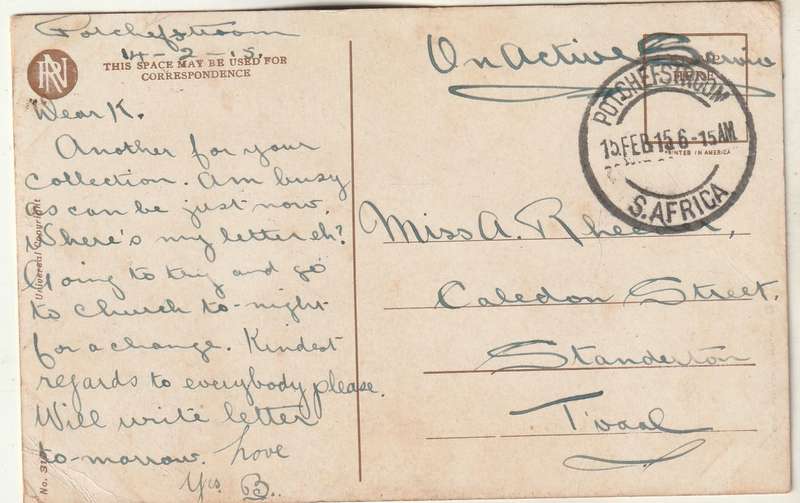 Potchefstroom
14-2-15.
RN
THIS SPACE MAY BE USED FOR
CORRESPONDENCE
Dear K.
Another for your
collection. Am busy
as can be just now.
Where's my letter eh?
Going to try and go
to church to-night
for a change. Kindest
regards to everybody please.
Will write letter
to-morrow. Love
Yrs. B.
Universal Copyright
No.
On Active Service
HERE
PRINTED IN AMERICA
POTCHEFSTROOM
15 FEB 15 6-15AM
S. AFRICA
Miss A.
Caledon Street.
Standerton
T'vaal